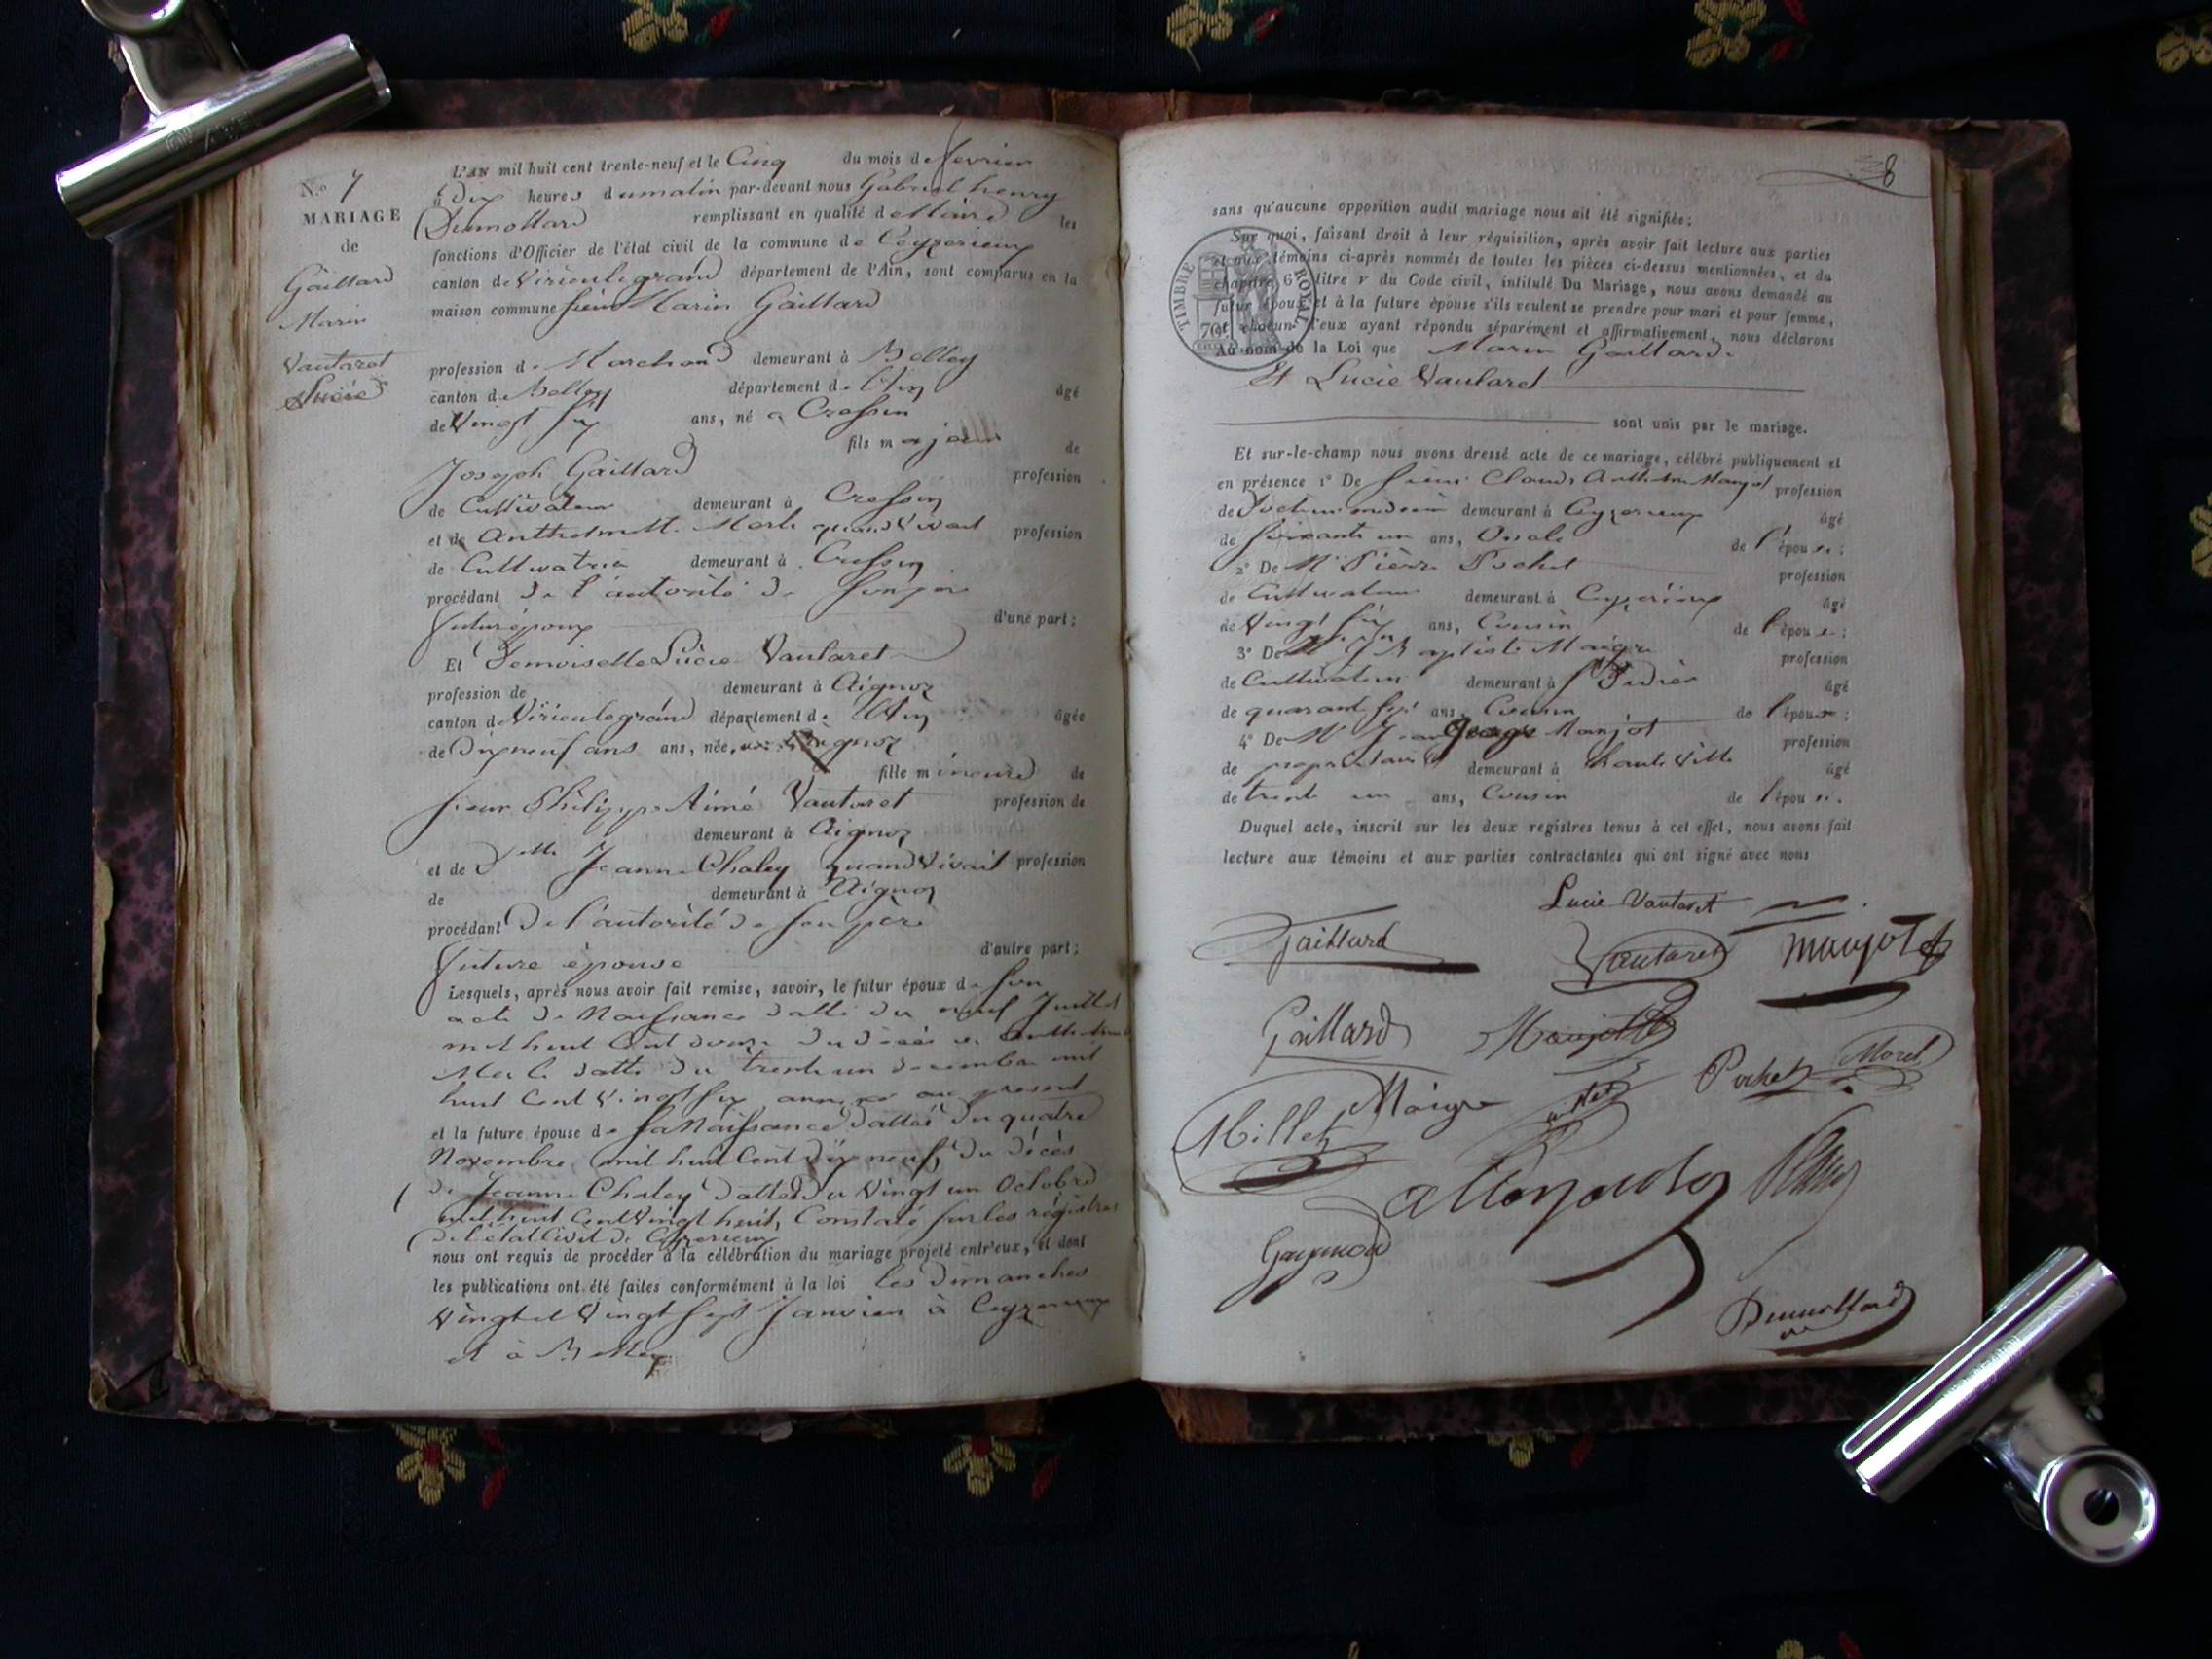 N.° 7
MARIAGE
de
Gaillard
Marin
Vautaret
Lucie
L'AN mil huit cent trente-neuf et le Cinq du mois de fevrier
à dix heures du matin par-devant nous Gabriel henry
Dumollard remplissant en qualité de Maire les
fonctions d'Officier de l'état civil de la commune de Ceyzerieux
canton de Virieulegrand département de l'Ain, sont comparus en la
maison commune sieur Marin Gaillard
profession de Marchand demeurant à Belley
canton de Belley département de l'Ain âgé
de Vingt six ans, né a Cressin
fils majeur de
Joseph Gaillard profession
de Cultivateur demeurant à Cressin
et de Anthelmette Merle quand Vivait profession
de Cultivatrice demeurant à Cressin
procédant de l'autorité de son père
futur époux d'une part;
Et Demoiselle Lucie Vautaret
profession de demeurant à Aignoz
canton de Virieulegrand département de l'Ain âgée
de Dix neuf ans ans, née Aignoz
fille mineure de
sieur Philippe Aimé Vautaret profession de
demeurant à Aignoz
et de Jeanne Chaley quand Vivait profession
de demeurant à Aignoz
procédant de l'autorité de son père
future épouse d'autre part;
Lesquels, après nous avoir fait remise, savoir, le futur époux de son
acte de Naissance datté du neuf Juillet
mil huit Cent douze du décès de
Merle datté du trente un decembre mil
huit Cent Vingt six annexé au present
et la future épouse de sa Naissance dattée du quatre
Novembre mil huit Cent dix neuf, du décès
de Jeanne Chaley datté du Vingt un Octobre
mil huit Cent Vingt huit, Constaté sur les régistres
de l'état Civil de Ceyzerieux
nous ont requis de procéder à la célébration du mariage projeté entr'eux, et dont
les publications ont été faites conformément à la loi les dimanches
Vingt et Vingt sept Janvier à Ceyzerieux
et à Belley
8
sans qu'aucune opposition audit mariage nous ait été signifiée;
Sur quoi, faisant droit à leur réquisition, après avoir fait lecture aux parties
et aux témoins ci-après nommés de toutes les pièces ci-dessus mentionnées, et du
chapitre 6 titre v du Code civil, intitulé Du Mariage, nous avons demandé au
futur époux et à la future épouse s'ils veulent se prendre pour mari et pour femme,
et chacun d'eux ayant répondu séparément et affirmativement, nous déclarons
Au nom de la Loi que Marin Gaillard.
Et Lucie Vautaret
TIMBRE ROYAL
70
sont unis par le mariage.
Et sur-le-champ nous avons dressé acte de ce mariage, célébré publiquement et
en présence 1° De sieur Claude Anthelme Manjot profession
de Docteur médecin demeurant à Ceyzerieux âgé
de soixante un ans, Oncle de l'épouse;
2° De Mr Pierre Pochet profession
de Cultivateur demeurant à Ceyzerieux âgé
de Vingt six ans, Cousin de l'épouse;
3° De Mr Jn Baptiste Maigre profession
de Cultivateur demeurant à St Didier âgé
de quarante six ans, Cousin de l'épouse;
4° De Mr Jean George Manjot profession
de propriétaire demeurant à haute Ville âgé
de trente un ans, Cousin de l'épouse.
Duquel acte, inscrit sur les deux registres tenus à cet effet, nous avons fait
lecture aux témoins et aux parties contractantes qui ont signé avec nous
Lucie Vautaret
Gaillard Vautaret Manjot
Gaillard Manjot
Pochet Morel
Millet Maigre
Dumollard